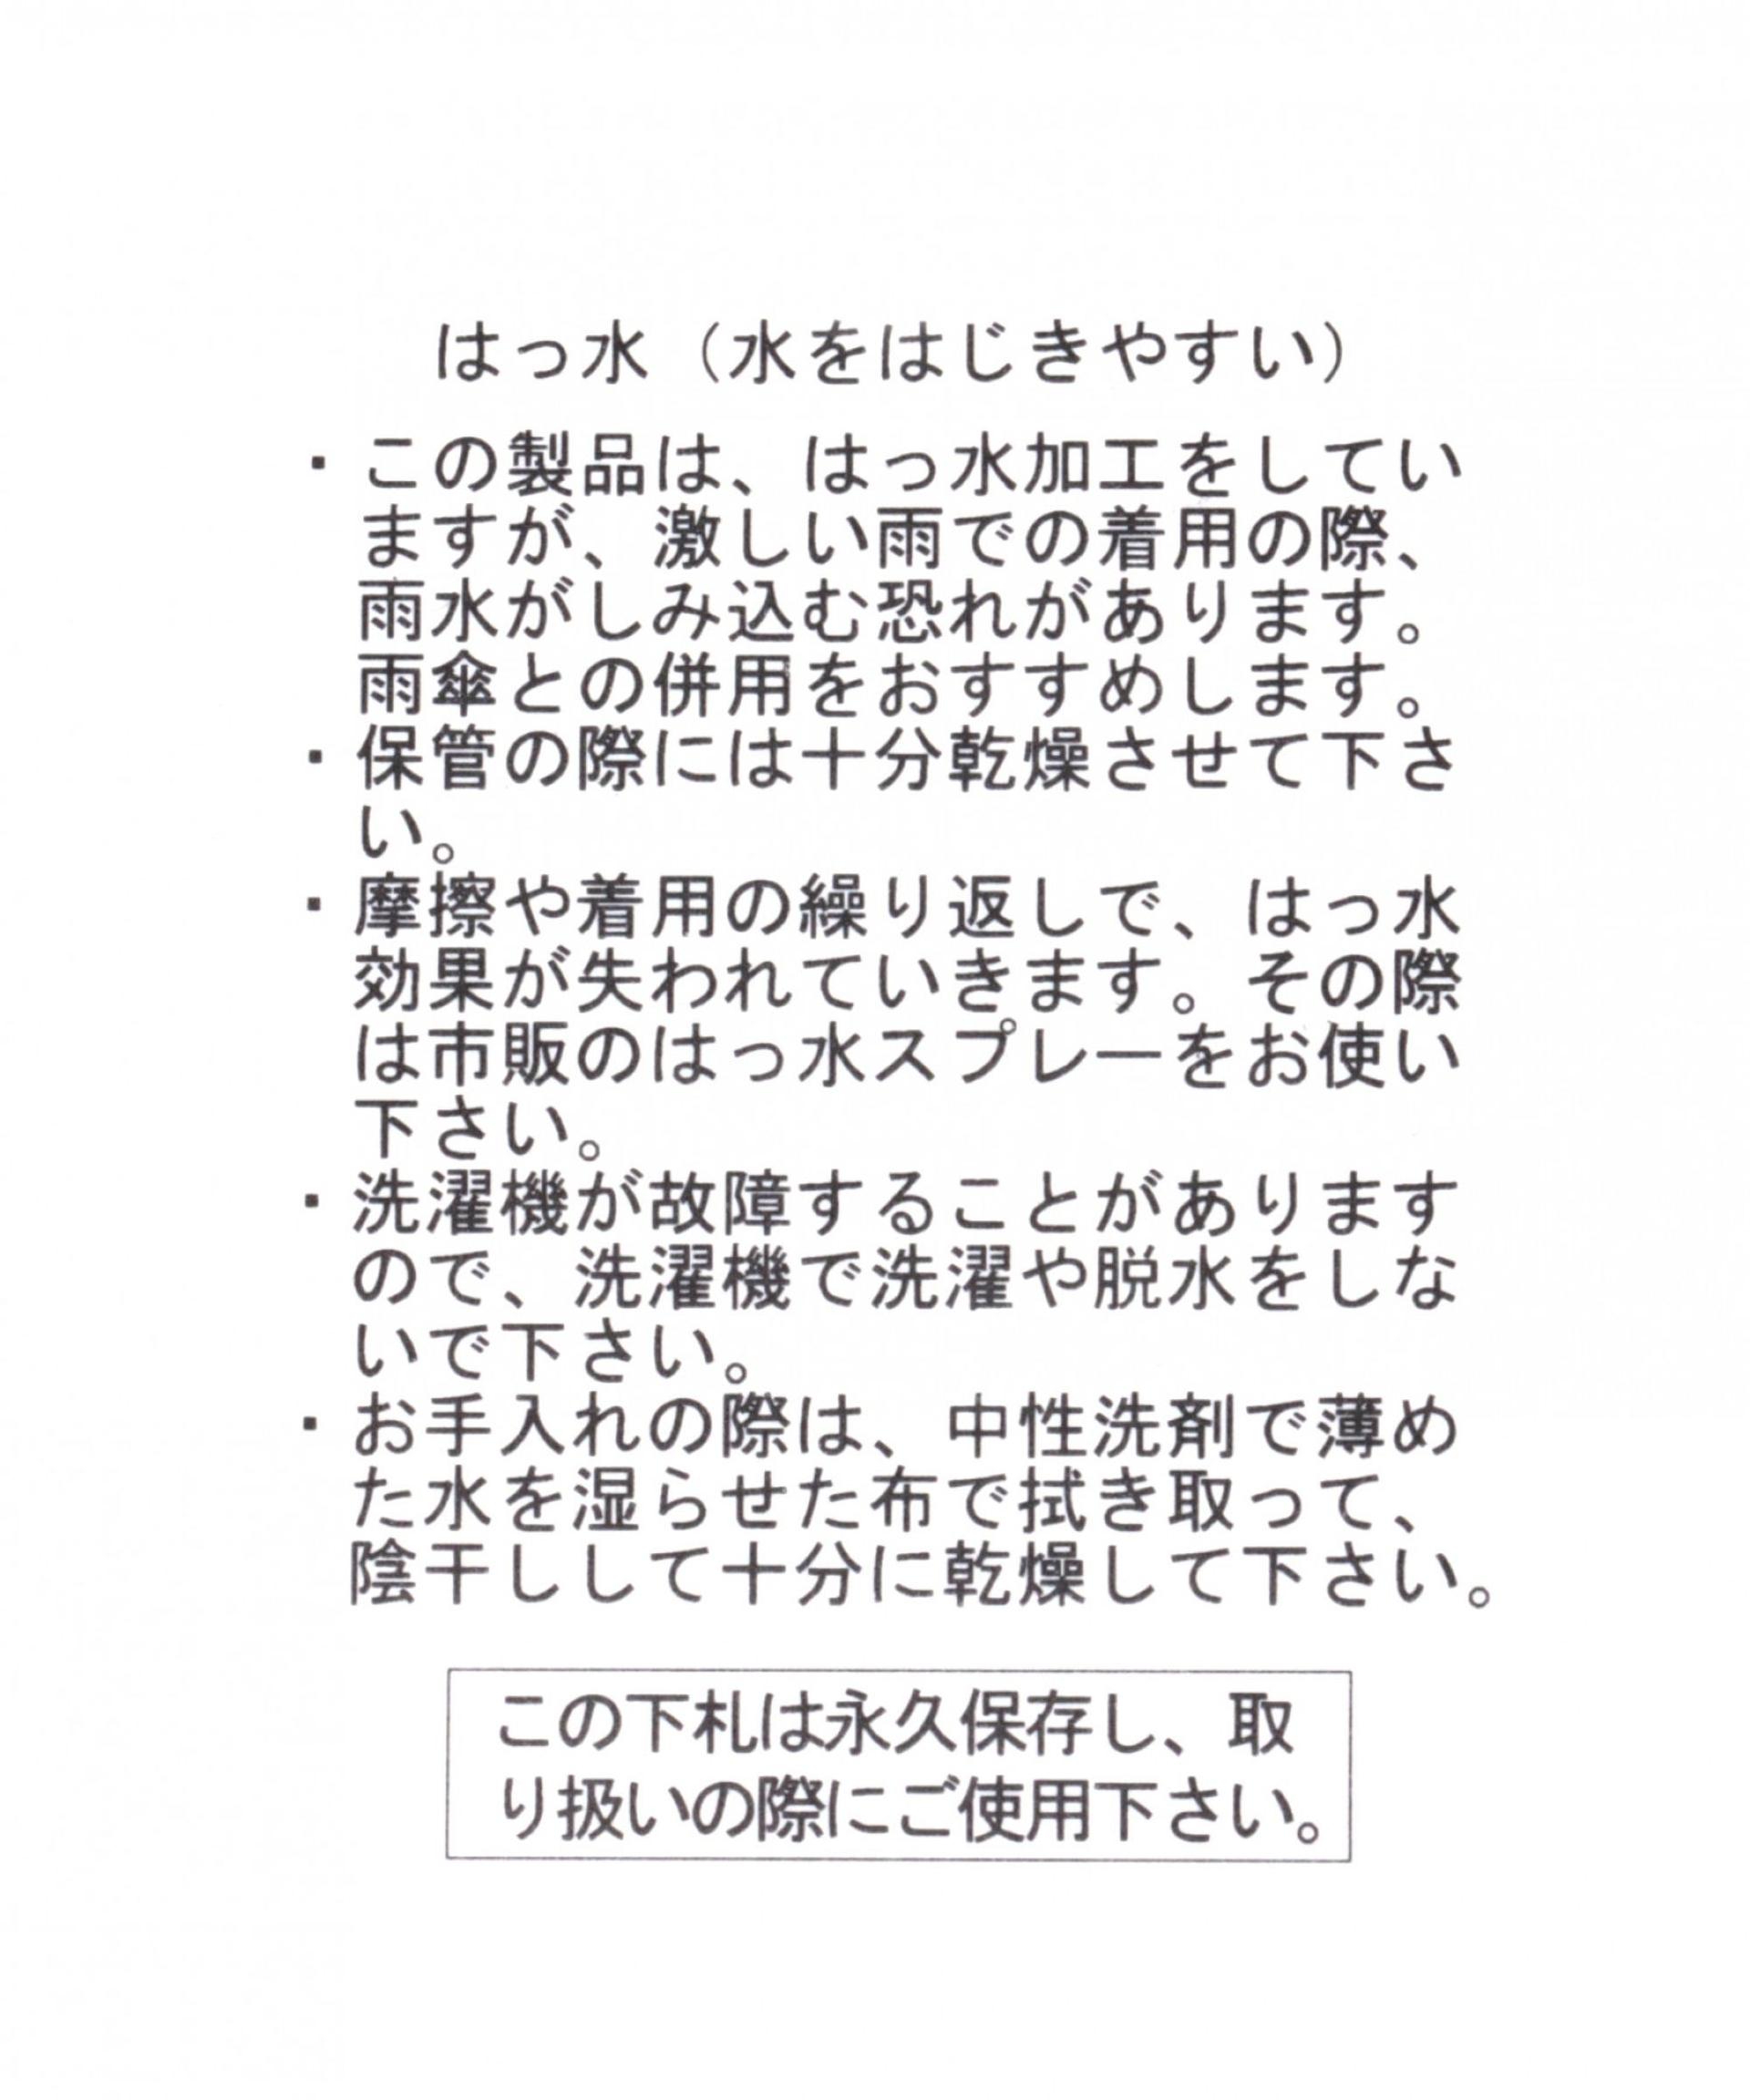 はっ水（水をはじきやすい）
・この製品は、はっ水加工をしてい
ますが、激しい雨での着用の際、
雨水がしみ込む恐れがあります。
雨傘との併用をおすすめします。
・保管の際には十分乾燥させて下さ
い。
・摩擦や着用の繰り返しで、はっ水
効果が失われていきます。その際
は市販のはっ水スプレーをお使い
下さい。
・洗濯機が故障することがあります
ので、洗濯機で洗濯や脱水をしな
いで下さい。
・お手入れの際は、中性洗剤で薄め
た水を湿らせた布で拭き取って、
陰干しして十分に乾燥して下さい。
この下札は永久保存し、取
り扱いの際にご使用下さい。